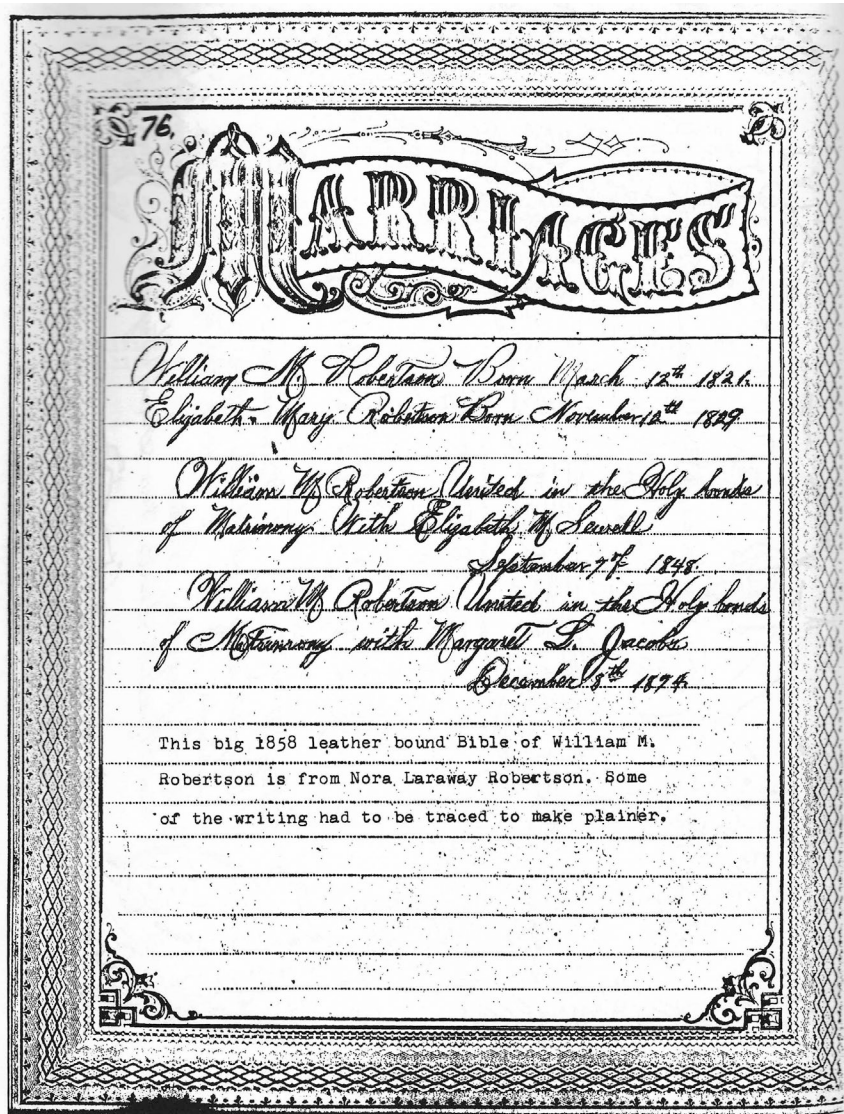 76.
MARRIAGES
William M. Robertson Born March 12th 1821.
Elizabeth. Mary Robertson Born November 12th 1829
William M Robertson United in the Holy bonds
of Matrimony With Elizabeth M Sewell
September 7th 1848.
William M Robertson United in the Holy bonds
of Matrimony with Margaret L. Jacobs
December 8th 1894.
This big 1858 leather bound Bible of William M.
Robertson is from Nora Laraway Robertson. Some
of the writing had to be traced to make plainer.